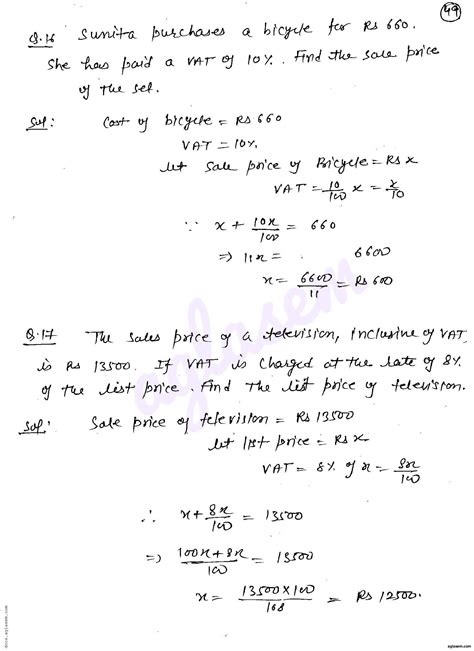 49
Q.16 Sunita purchases a bicycle for Rs 660.
She has paid a VAT of 10%. Find the sale price
of the set.
Sol: Cost of bicycle = Rs 660
VAT = 10%
let sale price of Bicycle = Rs x
VAT = 10/100 x = x/10
∵ x + 10x/100 = 660
⇒ 11x = 6600
x = 6600/11 = Rs 600
Q.17 The sales price of a television, inclusive of VAT
is Rs 13500. If VAT is Charged at the rate of 8%
of the list price. Find The list price of television.
Sol: Sale price of television = Rs 13500
let list price = Rs x
VAT = 8% of x = 8x/100
∴ x + 8x/100 = 13500
⇒ 100x + 8x/100 = 13500
x = 13500 × 100/108 = Rs 12500.
aglasem
docs.aglasem.com
aglasem.com